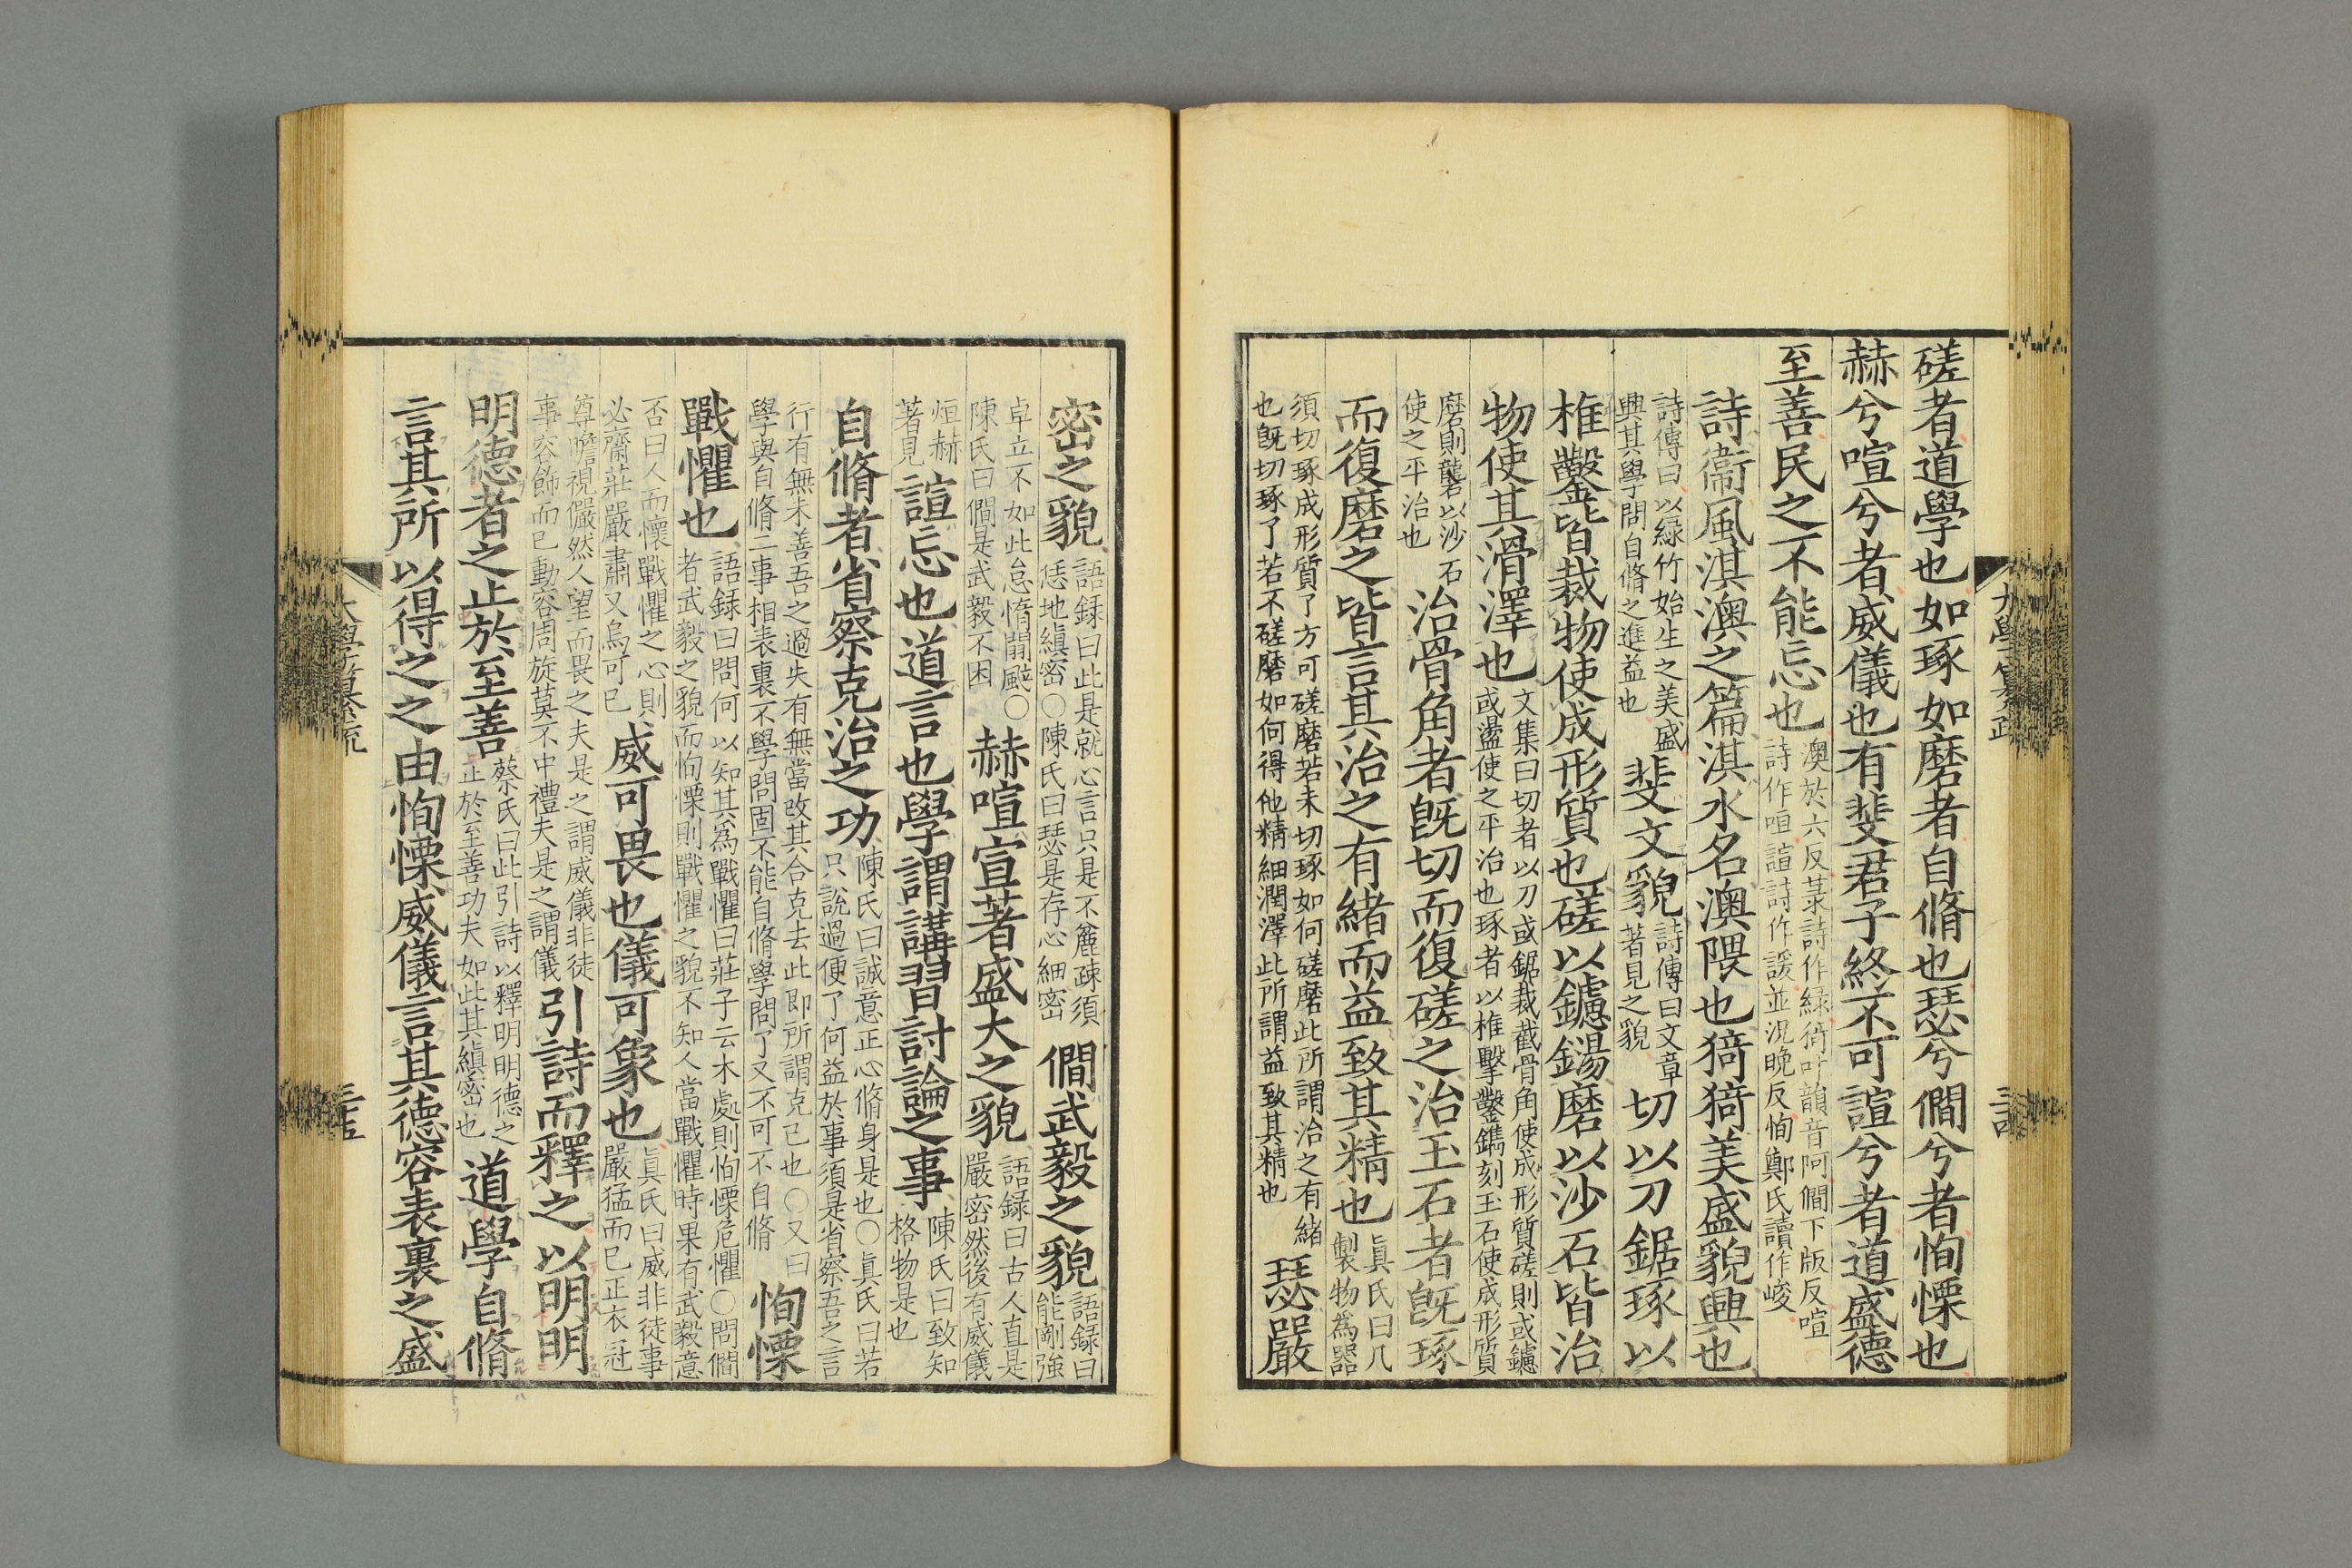 磋者道學也如琢如磨者自脩也瑟兮僩兮者恂慄也
赫兮喧兮者威儀也有斐君子終不可諠兮者道盛德
至善民之不能忘也
澳於六反菉詩作綠猗叶韻音阿僩下版反喧
詩作咺諠詩作諼並況晚反恂鄭氏讀作峻
詩衞風淇澳之篇淇水名澳隈也猗猗美盛貌興也
詩傳曰以緑竹始生之美盛
興其學問自脩之進益也
斐文貌
詩傳曰文章
著見之貌
切以刀鋸琢以
椎鑿皆裁物使成形質也磋以鑢鐋磨以沙石皆治
物使其滑澤也
文集曰切者以刀或鋸裁截骨角使成形質磋則或鑢
或盪使之平治也琢者以椎擊鑿鐫刻玉石使成形質
磨則礱以沙石
使之平治也
治骨角者旣切而復磋之治玉石者旣琢
而復磨之皆言其治之有緒而益致其精也
眞氏曰凡
製物爲器
須切琢成形質了方可磋磨若未切琢如何磋磨此所謂治之有緒
也旣切琢了若不磋磨如何得他精細潤澤此所謂益致其精也
瑟嚴
密之貌
語録曰此是就心言只是不麄疎須
恁地縝密○陳氏曰瑟是存心細密
僩武毅之貌
語録曰
能剛強
卓立不如此怠惰闒颯○
陳氏曰僩是武毅不困
赫喧宣著盛大之貌
語録曰古人直是
嚴密然後有威儀
烜赫
著見
諠忘也道言也學謂講習討論之事
陳氏曰致知
格物是也
自脩者省察克治之功
陳氏曰誠意正心脩身是也○眞氏曰若
只說過便了何益於事須是省察吾之言
行有無未善吾之過失有無當改其合克去此即所謂克己也○又曰
學與自脩二事相表裏不學問固不能自脩學問了又不可不自脩
恂慄
戰懼也
語録曰問何以知其爲戰懼曰莊子云木處則恂慄危懼○問僩
者武毅之貌而恂慄則戰懼之貌不知人當戰懼時果有武毅意
否曰人而懷戰懼之心則
必齋莊嚴肅又烏可已
威可畏也儀可象也
眞氏曰威非徒事
嚴猛而已正衣冠
尊瞻視儼然人望而畏之夫是之謂威儀非徒
事容飾而已動容周旋莫不中禮夫是之謂儀
引詩而釋之以明明
明德者之止於至善
蔡氏曰此引詩以釋明明德之
止於至善功夫如此其縝密也
道學自脩
言其所以得之之由恂慄威儀言其德容表裏之盛